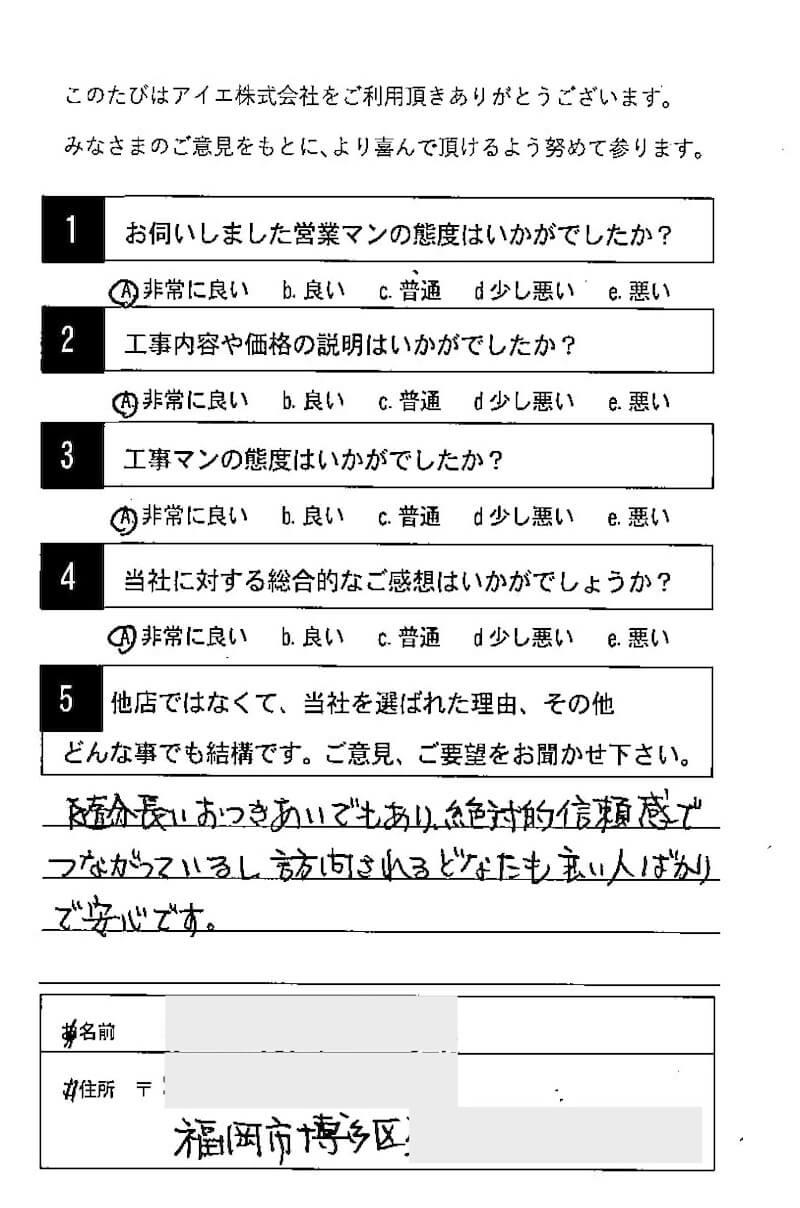 このたびはアイエ株式会社をご利用頂きありがとうございます。
みなさまのご意見をもとに、より喜んで頂けるよう努めて参ります。
1 お伺いしました営業マンの態度はいかがでしたか？
A 非常に良い b. 良い c. 普通 d 少し悪い e. 悪い
2 工事内容や価格の説明はいかがでしたか？
A 非常に良い b. 良い c. 普通 d 少し悪い e. 悪い
3 工事マンの態度はいかがでしたか？
A 非常に良い b. 良い c. 普通 d 少し悪い e. 悪い
4 当社に対する総合的なご感想はいかがでしょうか？
A 非常に良い b. 良い c. 普通 d 少し悪い e. 悪い
5 他店ではなくて、当社を選ばれた理由、その他
どんな事でも結構です。ご意見、ご要望をお聞かせ下さい。
随分長いおつきあいでもあり、絶対的信頼感で
つながっているし訪問されるどなたも良い人ばかり
で安心です。
お名前
ご住所 〒
福岡市博多区